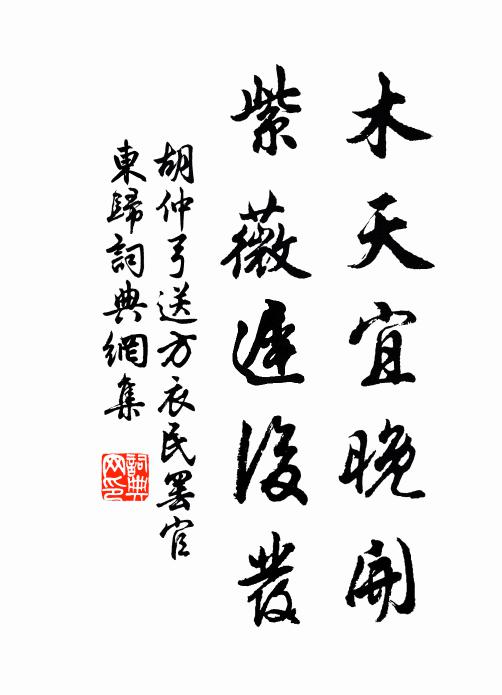 木天宜晚開
紫薇遲後發
胡仲弓送方衣民罢官
東歸詞典網集
詞典网印